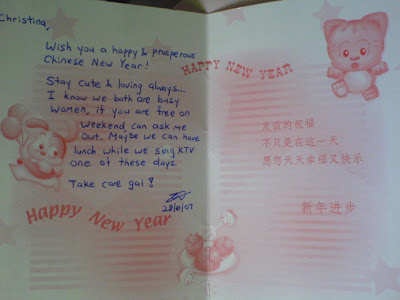 Christina,
Wish you a happy & prosperous
Chinese New Year!
Stay cute & loving always...
I know we both are busy
women, if you are free on
weekend can ask me
out. Maybe we can have
lunch while we sing KTV
one of these days.
Take care gal!
Happy New Year
HAPPY NEW YEAR
友谊的祝福
不只是在这一天
愿您天天幸福又快乐
新年进步